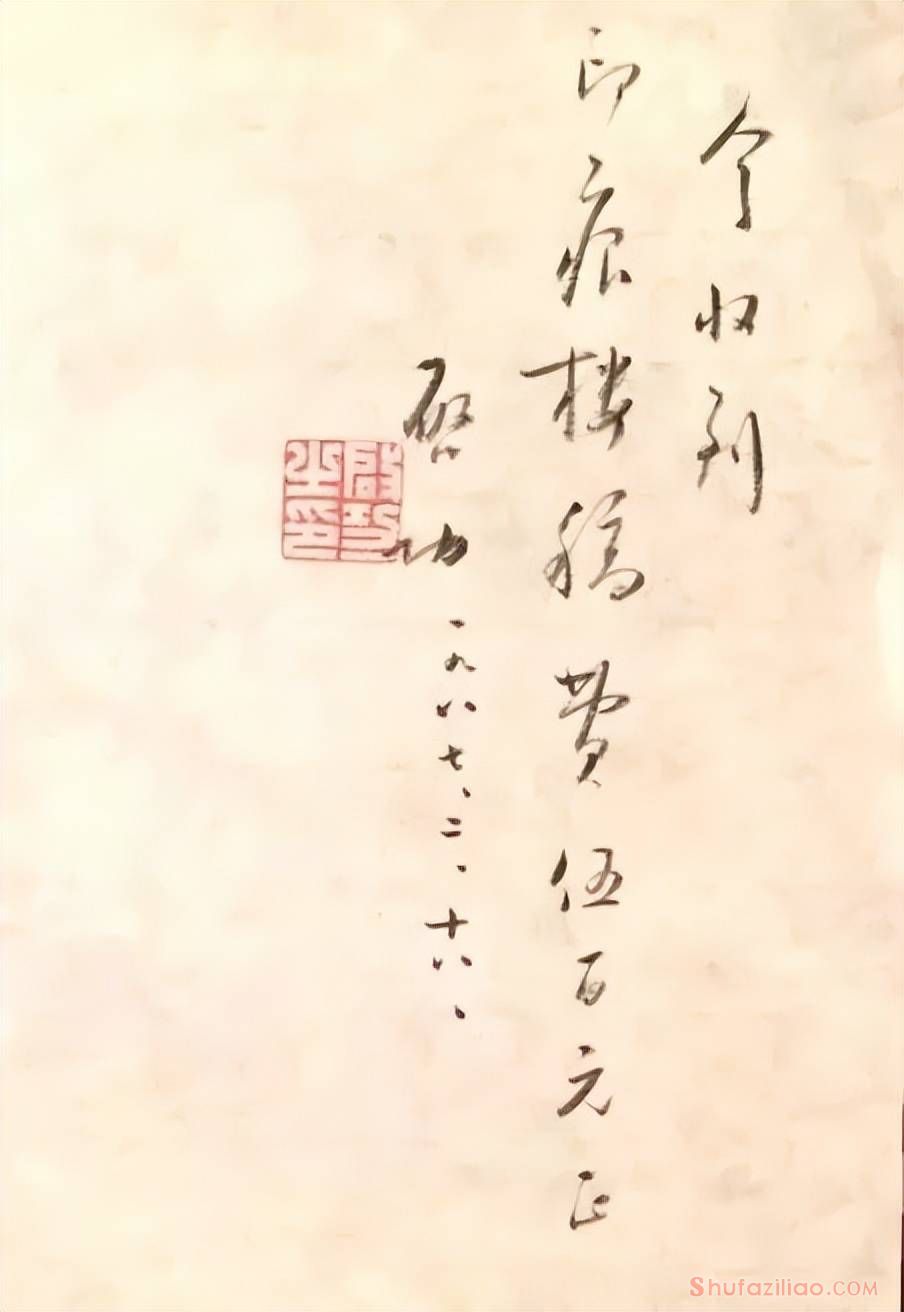 今收到
印痕楼稿费伍百元正
启功
一九八七、二、十八、
启功之印
Shufaziliao.COM